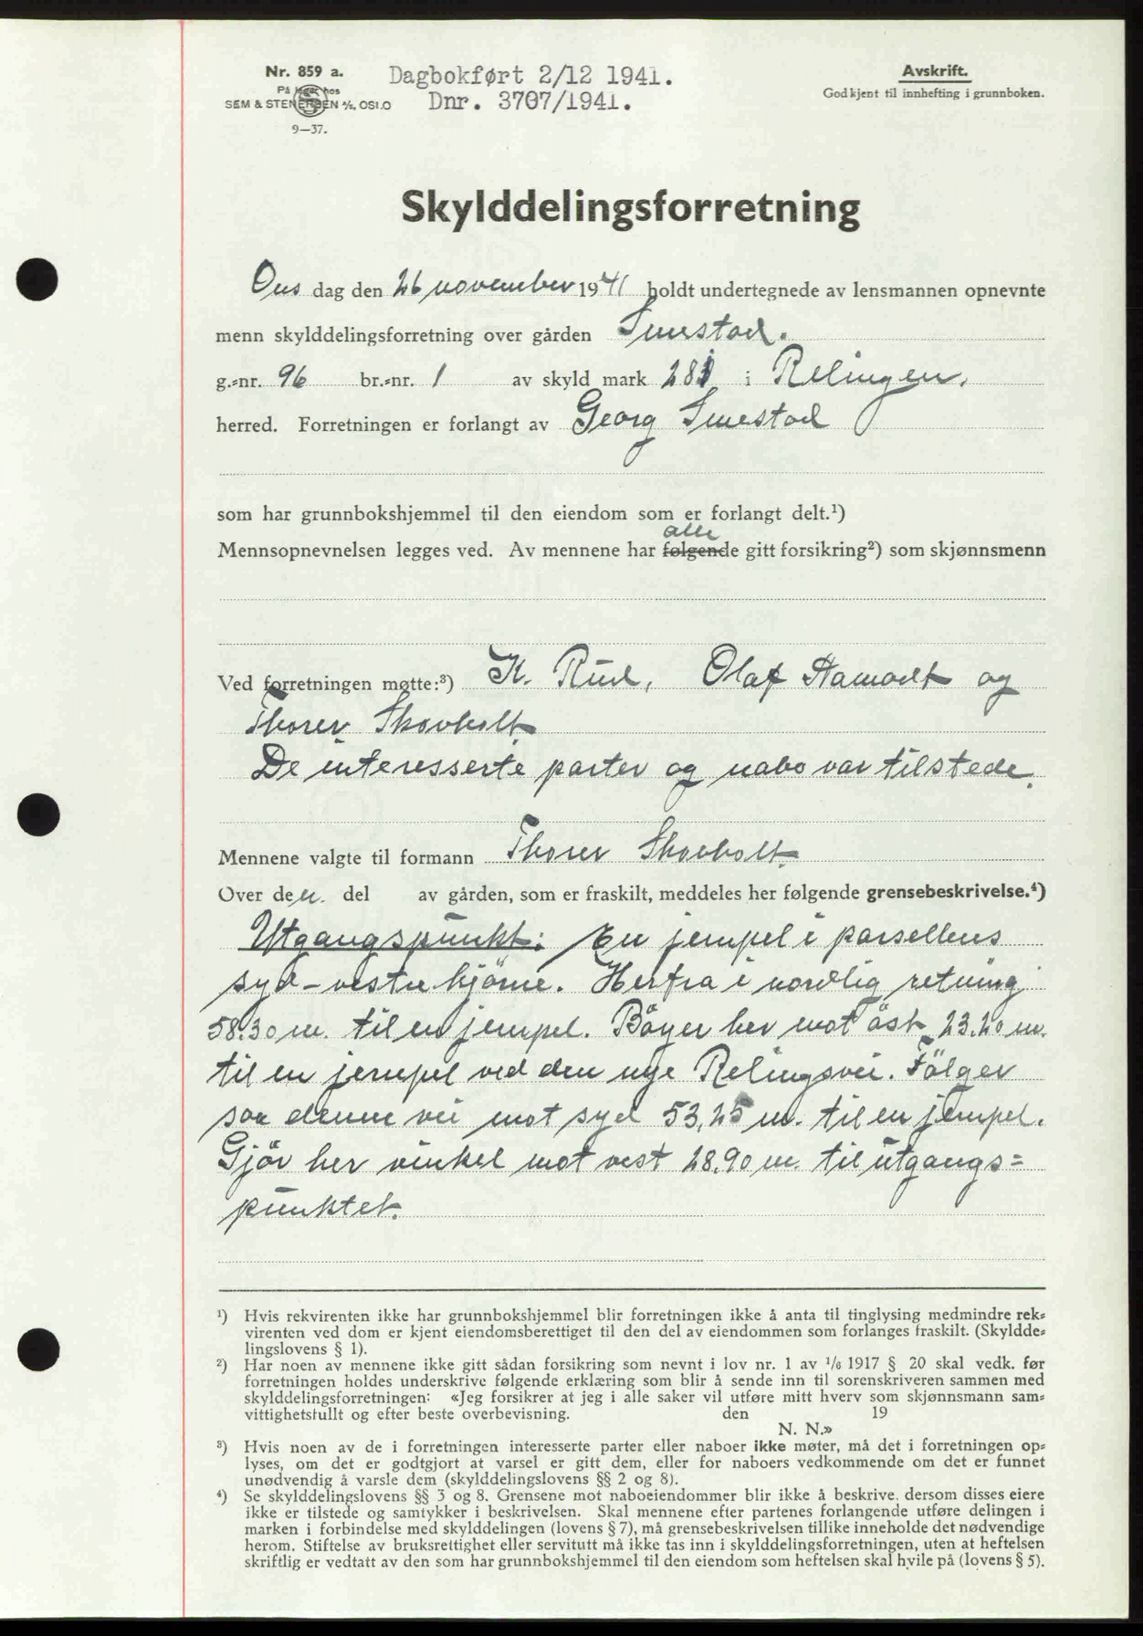 Nr. 859 a.
På lager hos
SEM & STENERSEN A/S, OSLO
9—37.
Dagbokført 2/12 1941.
Dnr. 3707/1941.
Avskrift.
Godkjent til innhefting i grunnboken.
Skylddelingsforretning
Ons dag den 26 november 1941 holdt undertegnede av lensmannen opnevnte
menn skylddelingsforretning over gården Smestad.
g.=nr. 96 br.=nr. 1 av skyld mark i Relingen,
herred. Forretningen er forlangt av Georg Smestad
som har grunnbokshjemmel til den eiendom som er forlangt delt.¹)
alle
Mennsopnevnelsen legges ved. Av mennene har følgende gitt forsikring²) som skjønnsmenn
Ved forretningen møtte:³) K. Rud, Olaf Hamodt og
Thorer Skovholt
De interesserte parter og nabo var tilstede.
Mennene valgte til formann Thorer Skovholt.
Over den del av gården, som er fraskilt, meddeles her følgende grensebeskrivelse.⁴)
Utgangspunkt: En jernpel i parsellens
syd-vestre hjörne. Herfra i nordlig retning
58.30 m. til en jernpel. Böyer her mot öst 23.20 m.
til en jernpel ved den nye Relingsvei. Fölger
saa denne vei mot syd 53,25 m. til en jernpel.
Gjör her vinkel mot vest 28.90 m. til utgangs=
punktet.
¹) Hvis rekvirenten ikke har grunnbokshjemmel blir forretningen ikke å anta til tinglysing medmindre rek=
virenten ved dom er kjent eiendomsberettiget til den del av eiendommen som forlanges fraskilt. (Skyldde=
lingslovens § 1).
²) Har noen av mennene ikke gitt sådan forsikring som nevnt i lov nr. 1 av 1/6 1917 § 20 skal vedk. før
forretningen holdes underskrive følgende erklæring som blir å sende inn til sorenskriveren sammen med
skylddelingsforretningen: «Jeg forsikrer at jeg i alle saker vil utføre mitt hverv som skjønnsmann sam=
vittighetsfullt og efter beste overbevisning. den 19
N. N.»
³) Hvis noen av de i forretningen interesserte parter eller naboer ikke møter, må det i forretningen op=
lyses, om det er godtgjort at varsel er gitt dem, eller for naboers vedkommende om det er funnet
unødvendig å varsle dem (skylddelingslovens §§ 2 og 8).
⁴) Se skylddelingslovens §§ 3 og 8. Grensene mot naboeiendommer blir ikke å beskrive, dersom disses eiere
ikke er tilstede og samtykker i beskrivelsen. Skal mennene efter partenes forlangende utføre delingen i
marken i forbindelse med skylddelingen (lovens § 7), må grensebeskrivelsen tillike inneholde det nødvendige
herom. Stiftelse av bruksrettighet eller servitutt må ikke tas inn i skylddelingsforretningen, uten at heftelsen
skriftlig er vedtatt av den som har grunnbokshjemmel til den eiendom som heftelsen skal hvile på (lovens § 5).